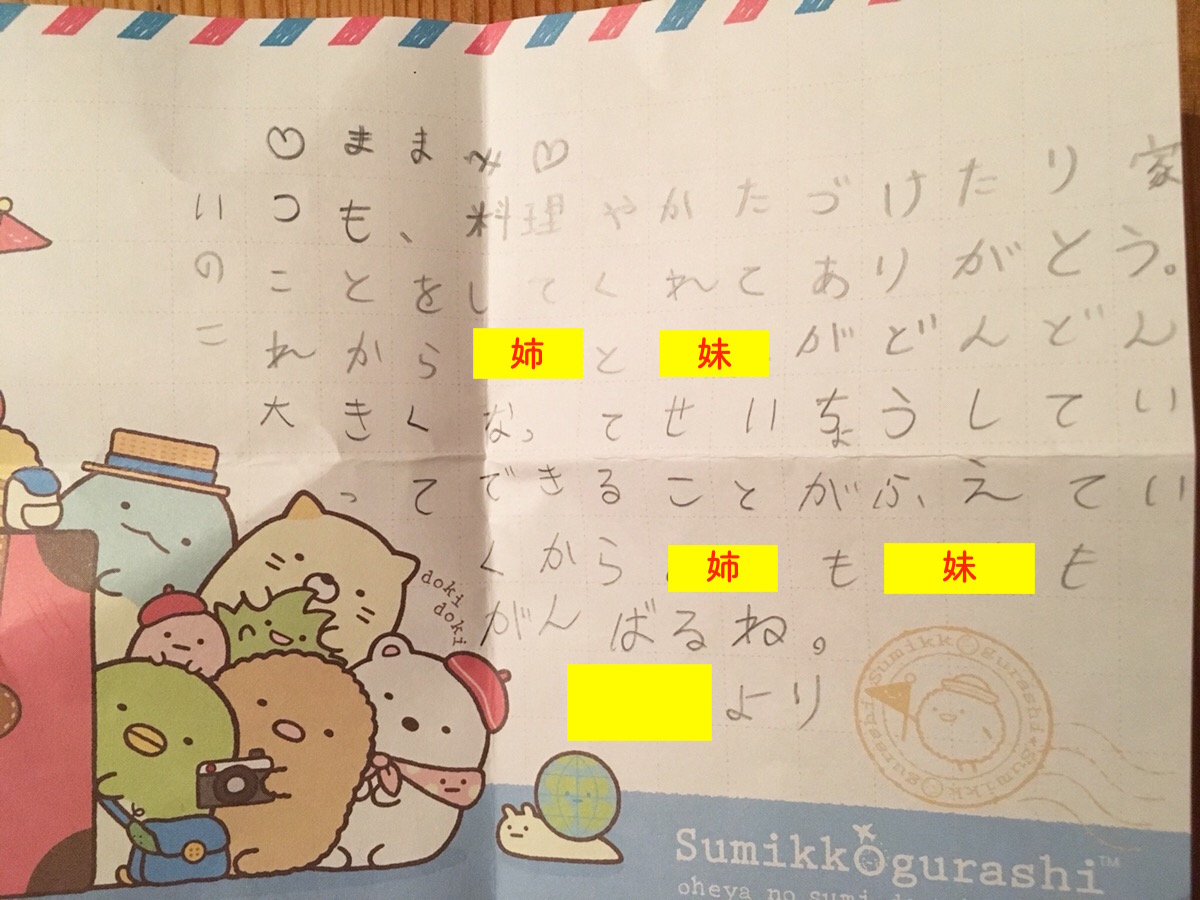 ♡ままへ♡
いつも、料理やかたづけたり家
のことをしてくれてありがとう。
これから姉と妹がどんどん
大きくなってせいちょうしてい
ってできることがふえてい
くから姉も妹も
がんばるね。
より
doki
doki
Sumikkogurashi
Sumikkogurashi
Sumikkogurashi™
oheya no sumi